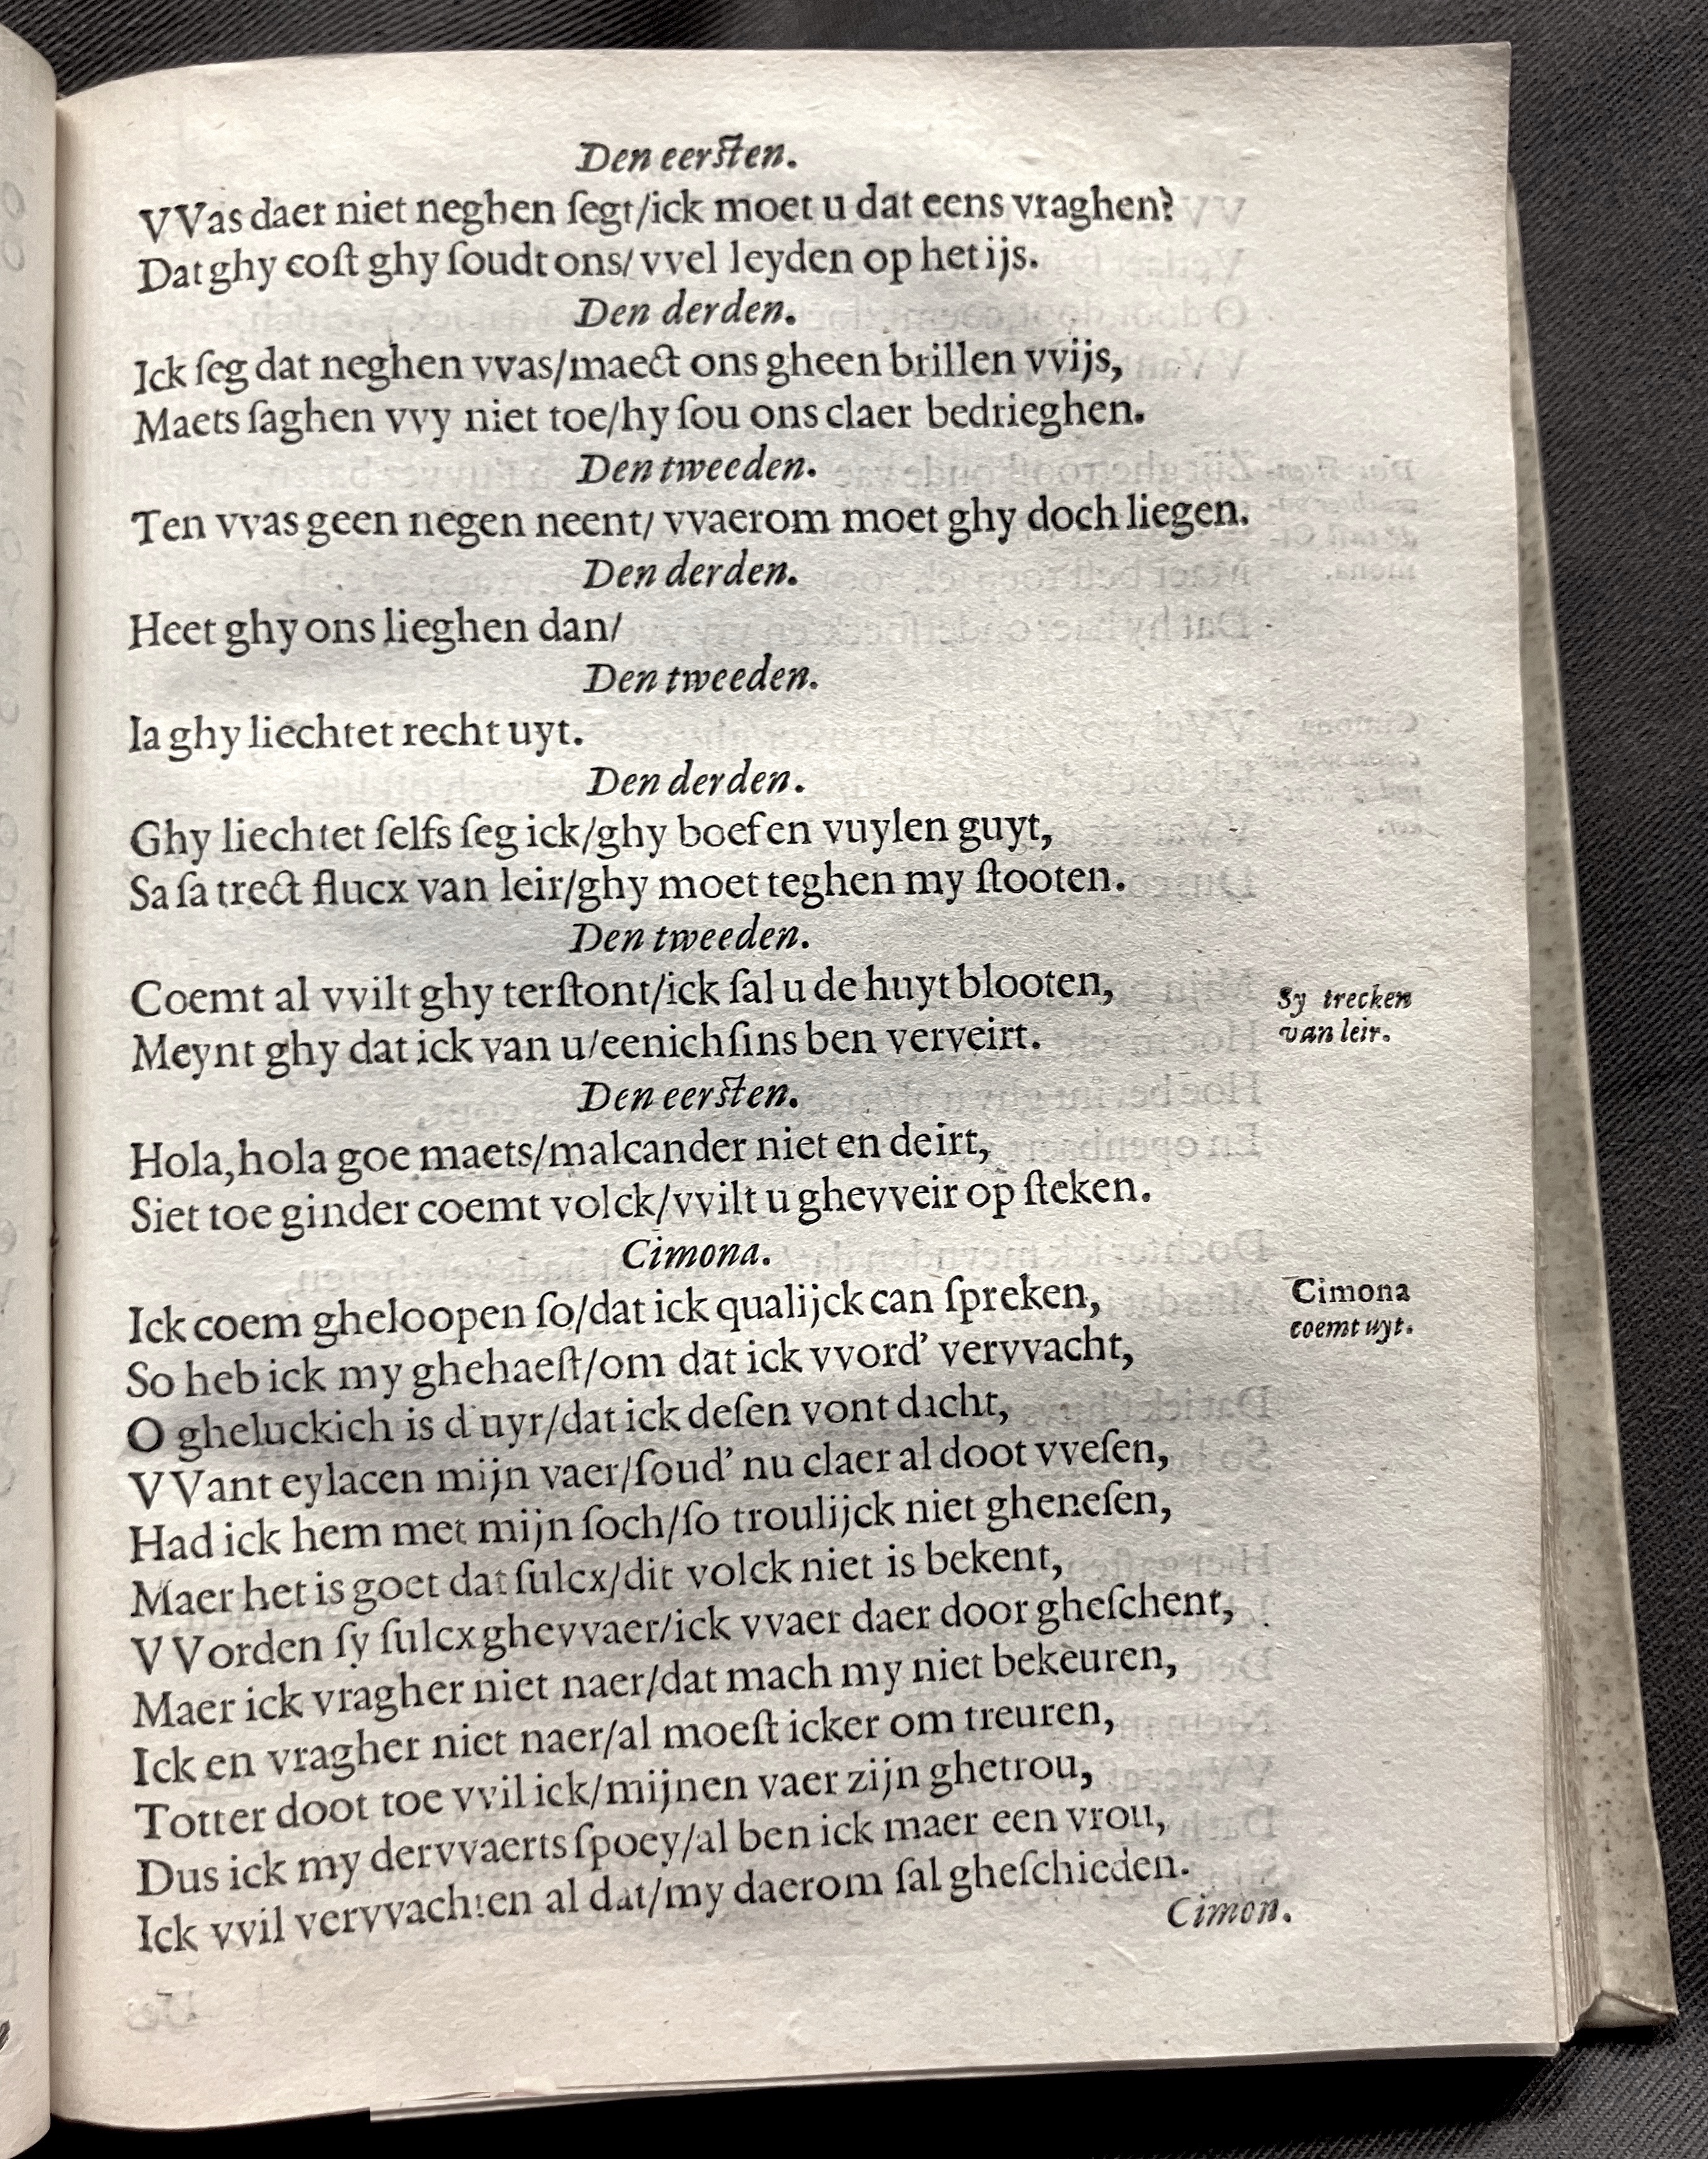 Den eerſten.
VVas daer niet neghen ſegt/ick moet u dat eens vraghen?
Dat ghy coſt ghy ſoudt ons/ vvel leyden op het ijs.
Den derden.
Ick ſeg dat neghen vvas/maect ons gheen brillen vvijs,
Maets ſaghen vvy niet toe/hy ſou ons claer bedrieghen.
Den tweeden.
Ten vvas geen negen neent/ vvaerom moet ghy doch liegen.
Den derden.
Heet ghy ons lieghen dan/
Den tweeden.
Ia ghy liechtet recht uyt.
Den derden.
Ghy liechtet ſelfs ſeg ick/ghy boef en vuylen guyt,
Sa ſa trect flucx van leir/ghy moet teghen my ſtooten.
Den tweeden.
Coemt al vvilt ghy terſtont/ick ſal u de huyt blooten,
Sy trecken
van leir.
Meynt ghy dat ick van u/eenichſins ben verveirt.
Den eerſten.
Hola, hola goe maets/malcander niet en deirt,
Siet toe ginder coemt volck/vvilt u ghevveir op ſteken.
Cimona.
Ick coem gheloopen ſo/dat ick qualijck can ſpreken,
Cimona
coemt uyt.
So heb ick my ghehaeſt/om dat ick vvord' vervvacht,
O gheluckich is d'uyr/dat ick deſen vont dacht,
VVant eylacen mijn vaer/ſoud' nu claer al doot vveſen,
Had ick hem met mijn ſoch/ſo troulijck niet gheneſen,
Maer het is goet dat ſulcx/dit volck niet is bekent,
VVorden ſy ſulcx ghevvaer/ick vvaer daer door gheſchent,
Maer ick vragher niet naer/dat mach my niet bekeuren,
Ick en vragher niet naer/al moeſt icker om treuren,
Totter doot toe vvil ick/mijnen vaer zijn ghetrou,
Dus ick my dervvaerts ſpoey/al ben ick maer een vrou,
Ick vvil vervvachten al dat/my daerom ſal gheſchieden.
Cimon.